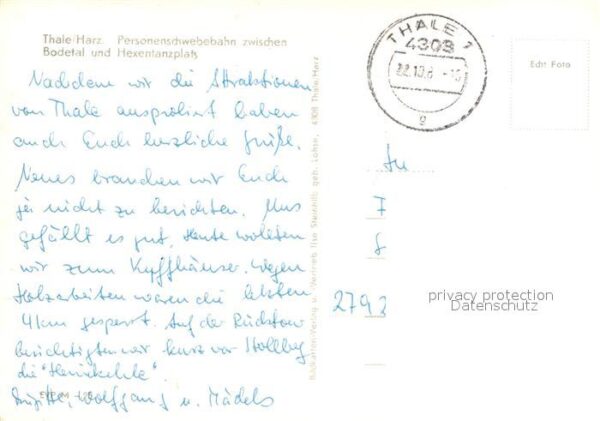 Thale/Harz. Personenschwebebahn zwischen
Bodetal und Hexentanzplatz
THALE 1
4308
22.10.8
g
Echt Foto
Nachdem wir die Attraktionen
von Thale ausprobiert haben
auch Euch herzliche Grüße.
Neues brauchen wir Euch
ja nicht zu berichten. Uns
gefällt es gut. Heute wollten
wir zum Kyffhäuser. Wegen
Holzarbeiten waren die letzten
4 km gesperrt. Auf der Rücktour
besichtigten wir kurz vor Stollbg
die "Heimkehle".
Brigitte, Wolfgang u. Mädels
An
2792
privacy protection
Datenschutz
Bildkarten-Verlag u. Vertrieb Ilse Steinhilb geb. Lohse, 4308 Thale/Harz